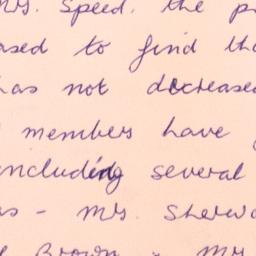 Mrs. Speed. the
ased to find
has not decreased
members have
including several
as - Mrs.
Brown